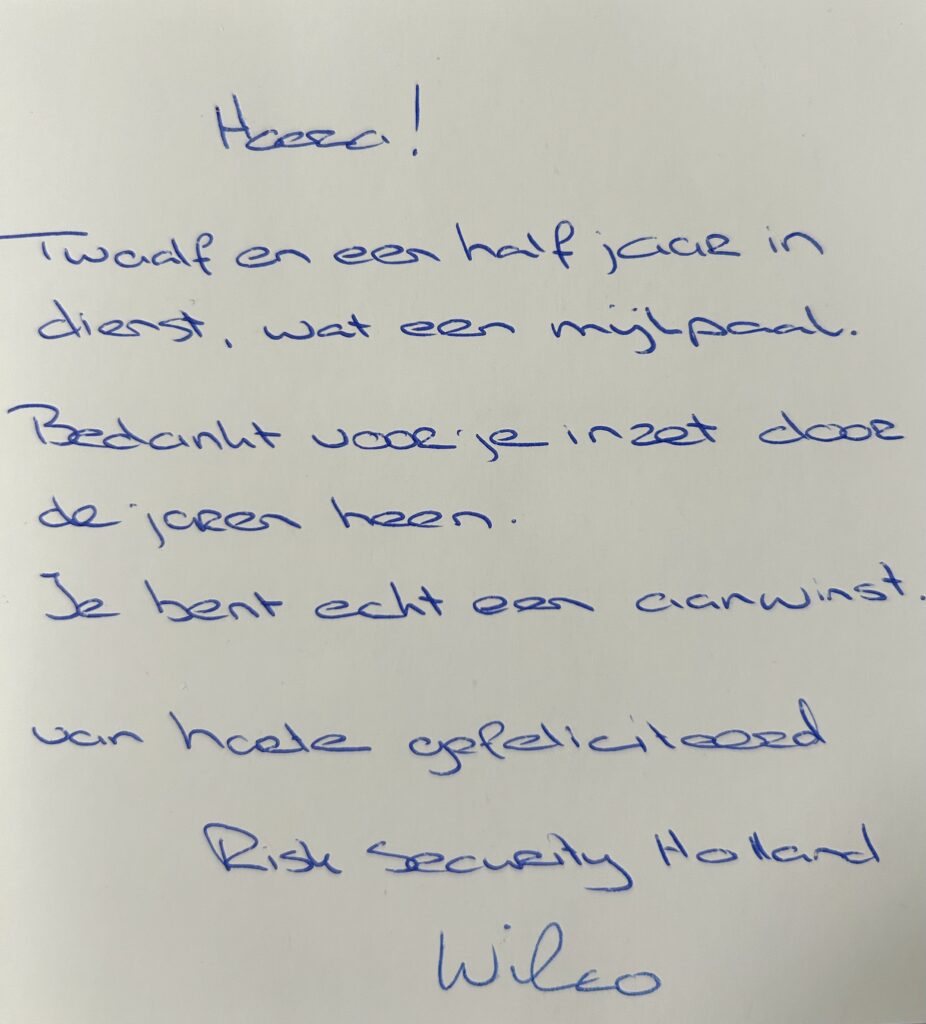 Hoera!
Twaalf en een half jaar in
dienst, wat een mijlpaal.
Bedankt voor je inzet door
de jaren heen.
Je bent echt een aanwinst.
van harte gefeliciteerd
Risk Security Holland
Wilco